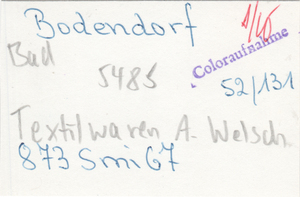 Bodendorf
Bad
5485
Coloraufnahme
52/131
Textilwaren A. Welsch
873 Smi 67